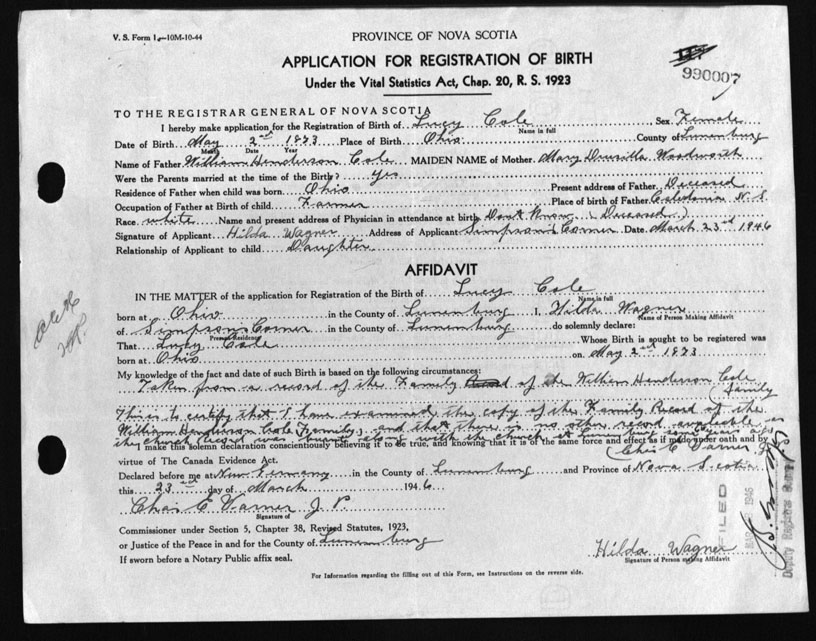 V. S. Form 1.—10M-10-44
PROVINCE OF NOVA SCOTIA
APPLICATION FOR REGISTRATION OF BIRTH
Under the Vital Statistics Act, Chap. 20, R. S. 1923
990007
TO THE REGISTRAR GENERAL OF NOVA SCOTIA
I hereby make application for the Registration of Birth of Lucy Cole Sex Female
Name in full
Date of Birth May 2nd 1873 Place of Birth Ohio County of Lunenburg
Month Date Year
Name of Father William Henderson Cole MAIDEN NAME of Mother Mary Drusilla Woodworth
Were the Parents married at the time of the Birth? yes
Residence of Father when child was born Ohio Present address of Father Deceased
Occupation of Father at Birth of child Farmer Place of birth of Father Caledonia N.S.
Race white Name and present address of Physician in attendance at birth Dont Know (Deceased)
Signature of Applicant Hilda Wagner Address of Applicant Simpson's Corner Date March 23rd 1946
Relationship of Applicant to child Daughter
AFFIDAVIT
IN THE MATTER of the application for Registration of the Birth of Lucy Cole
Name in full
born at Ohio in the County of Lunenburg I, Hilda Wagner
Name of Person Making Affidavit
of Simpson's Corner in the County of Lunenburg do solemnly declare:
Present Residence
That Lucy Cole Whose Birth is sought to be registered was
born at Ohio on May 2nd 1873
My knowledge of the fact and date of such Birth is based on the following circumstances:
Taken from a record of the Family of the William Henderson Cole
family
This is to certify that I have examined the copy of the Family Record of the
William Henderson Cole Family, and that there is no other record available as
the church record was burned along with the church at
I make this solemn declaration conscientiously believing it to be true, and knowing that it is of the same force and effect as if made under oath and by
Chas E Varner J.P.
virtue of The Canada Evidence Act.
Declared before me at New Germany in the County of Lunenburg and Province of Nova Scotia
this 23rd day of March 1946
Chas E Varner J P.
Signature of
Commissioner under Section 5, Chapter 38, Revised Statutes, 1923,
or Justice of the Peace in and for the County of Lunenburg
If sworn before a Notary Public affix seal.
Hilda Wagner
Signature of Person making Affidavit
For Information regarding the filling out of this Form, see Instructions on the reverse side.
FILED
1946
Deputy Registrar General